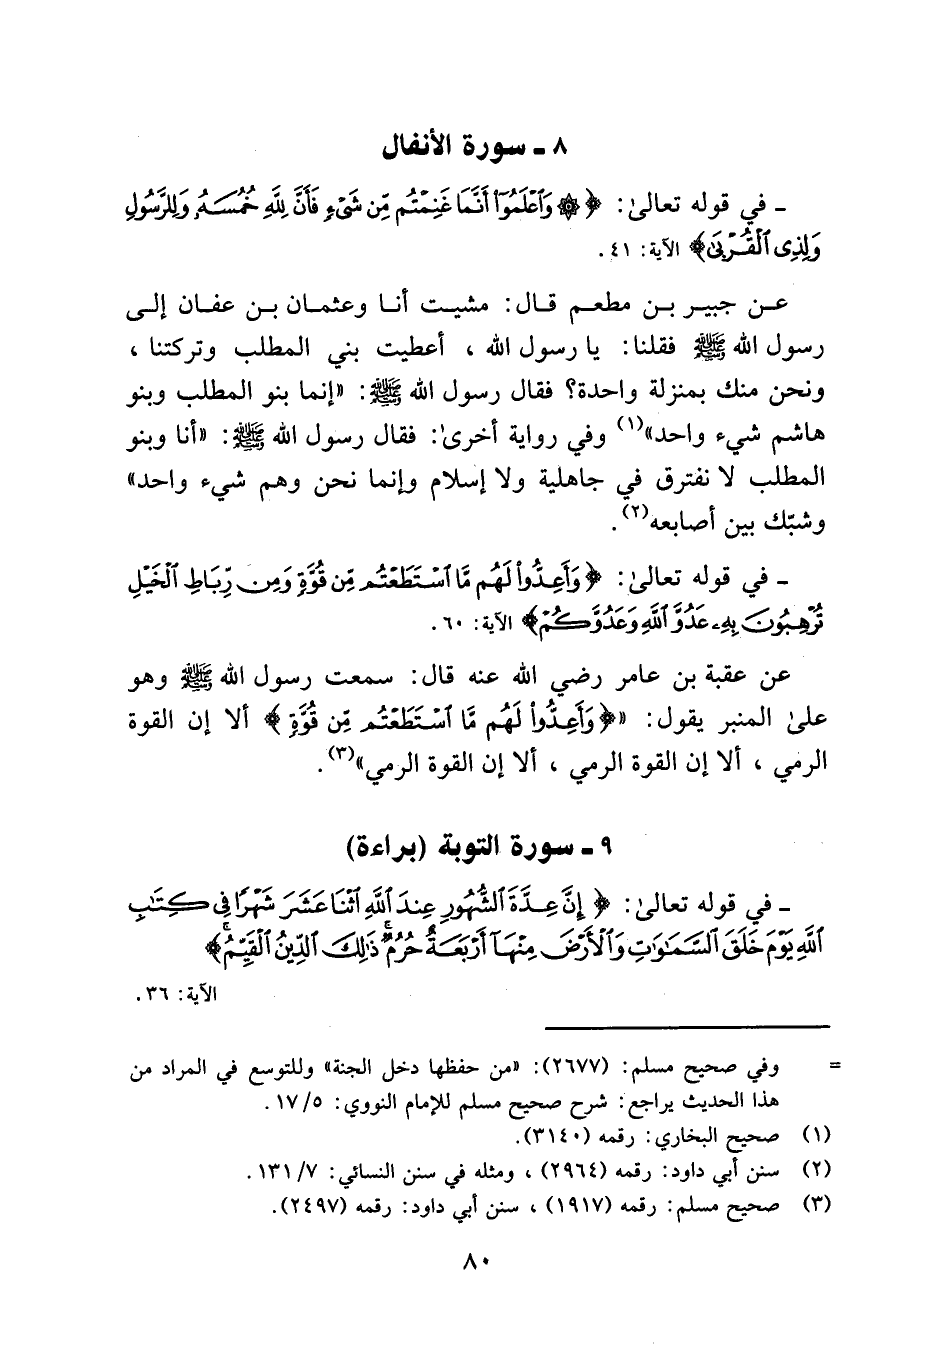 ٨ ـ سورة الأنفال
ـ في قوله تعالىٰ: ﴿ ۞ وَٱعْلَمُوٓا۟ أَنَّمَا غَنِمْتُم مِّن شَىْءٍ فَأَنَّ لِلَّهِ خُمُسَهُۥ وَلِلرَّسُولِ
وَلِذِى ٱلْقُرْبَىٰ﴾ الآية: ٤١ .
عن جبير بن مطعم قال: مشيت أنا وعثمان بن عفان إلى
رسول الله ﷺ فقلنا: يا رسول الله ، أعطيت بني المطلب وتركتنا ،
ونحن منك بمنزلة واحدة؟ فقال رسول الله ﷺ: «إنما بنو المطلب وبنو
هاشم شيء واحد»(١) وفي رواية أخرىٰ: فقال رسول الله ﷺ: «أنا وبنو
المطلب لا نفترق في جاهلية ولا إسلام وإنما نحن وهم شيء واحد»
وشبّك بين أصابعه(٢).
ـ في قوله تعالىٰ: ﴿ وَأَعِدُّوا۟ لَهُم مَّا ٱسْتَطَعْتُم مِّن قُوَّةٍ وَمِن رِّبَاطِ ٱلْخَيْلِ
تُرْهِبُونَ بِهِۦ عَدُوَّ ٱللَّهِ وَعَدُوَّكُمْ﴾ الآية: ٦٠ .
عن عقبة بن عامر رضي الله عنه قال: سمعت رسول الله ﷺ وهو
علىٰ المنبر يقول: «﴿ وَأَعِدُّوا۟ لَهُم مَّا ٱسْتَطَعْتُم مِّن قُوَّةٍ ﴾ ألا إن القوة
الرمي ، ألا إن القوة الرمي ، ألا إن القوة الرمي»(٣).
٩ ـ سورة التوبة (براءة)
ـ في قوله تعالىٰ: ﴿ إِنَّ عِدَّةَ ٱلشُّهُورِ عِندَ ٱللَّهِ ٱثْنَا عَشَرَ شَهْرًا فِى كِتَٰبِ
ٱللَّهِ يَوْمَ خَلَقَ ٱلسَّمَٰوَٰتِ وَٱلْأَرْضَ مِنْهَآ أَرْبَعَةٌ حُرُمٌ ۚ ذَٰلِكَ ٱلدِّينُ ٱلْقَيِّمُ ۚ﴾
الآية: ٣٦ .
= وفي صحيح مسلم: (٢٦٧٧): «من حفظها دخل الجنة» وللتوسع في المراد من
هذا الحديث يراجع: شرح صحيح مسلم للإمام النووي: ١٧/٥ .
(١) صحيح البخاري: رقمه (٣١٤٠).
(٢) سنن أبي داود: رقمه (٢٩٦٤) ، ومثله في سنن النسائي: ١٣١/٧ .
(٣) صحيح مسلم: رقمه (١٩١٧) ، سنن أبي داود: رقمه (٢٤٩٧).
٨٠